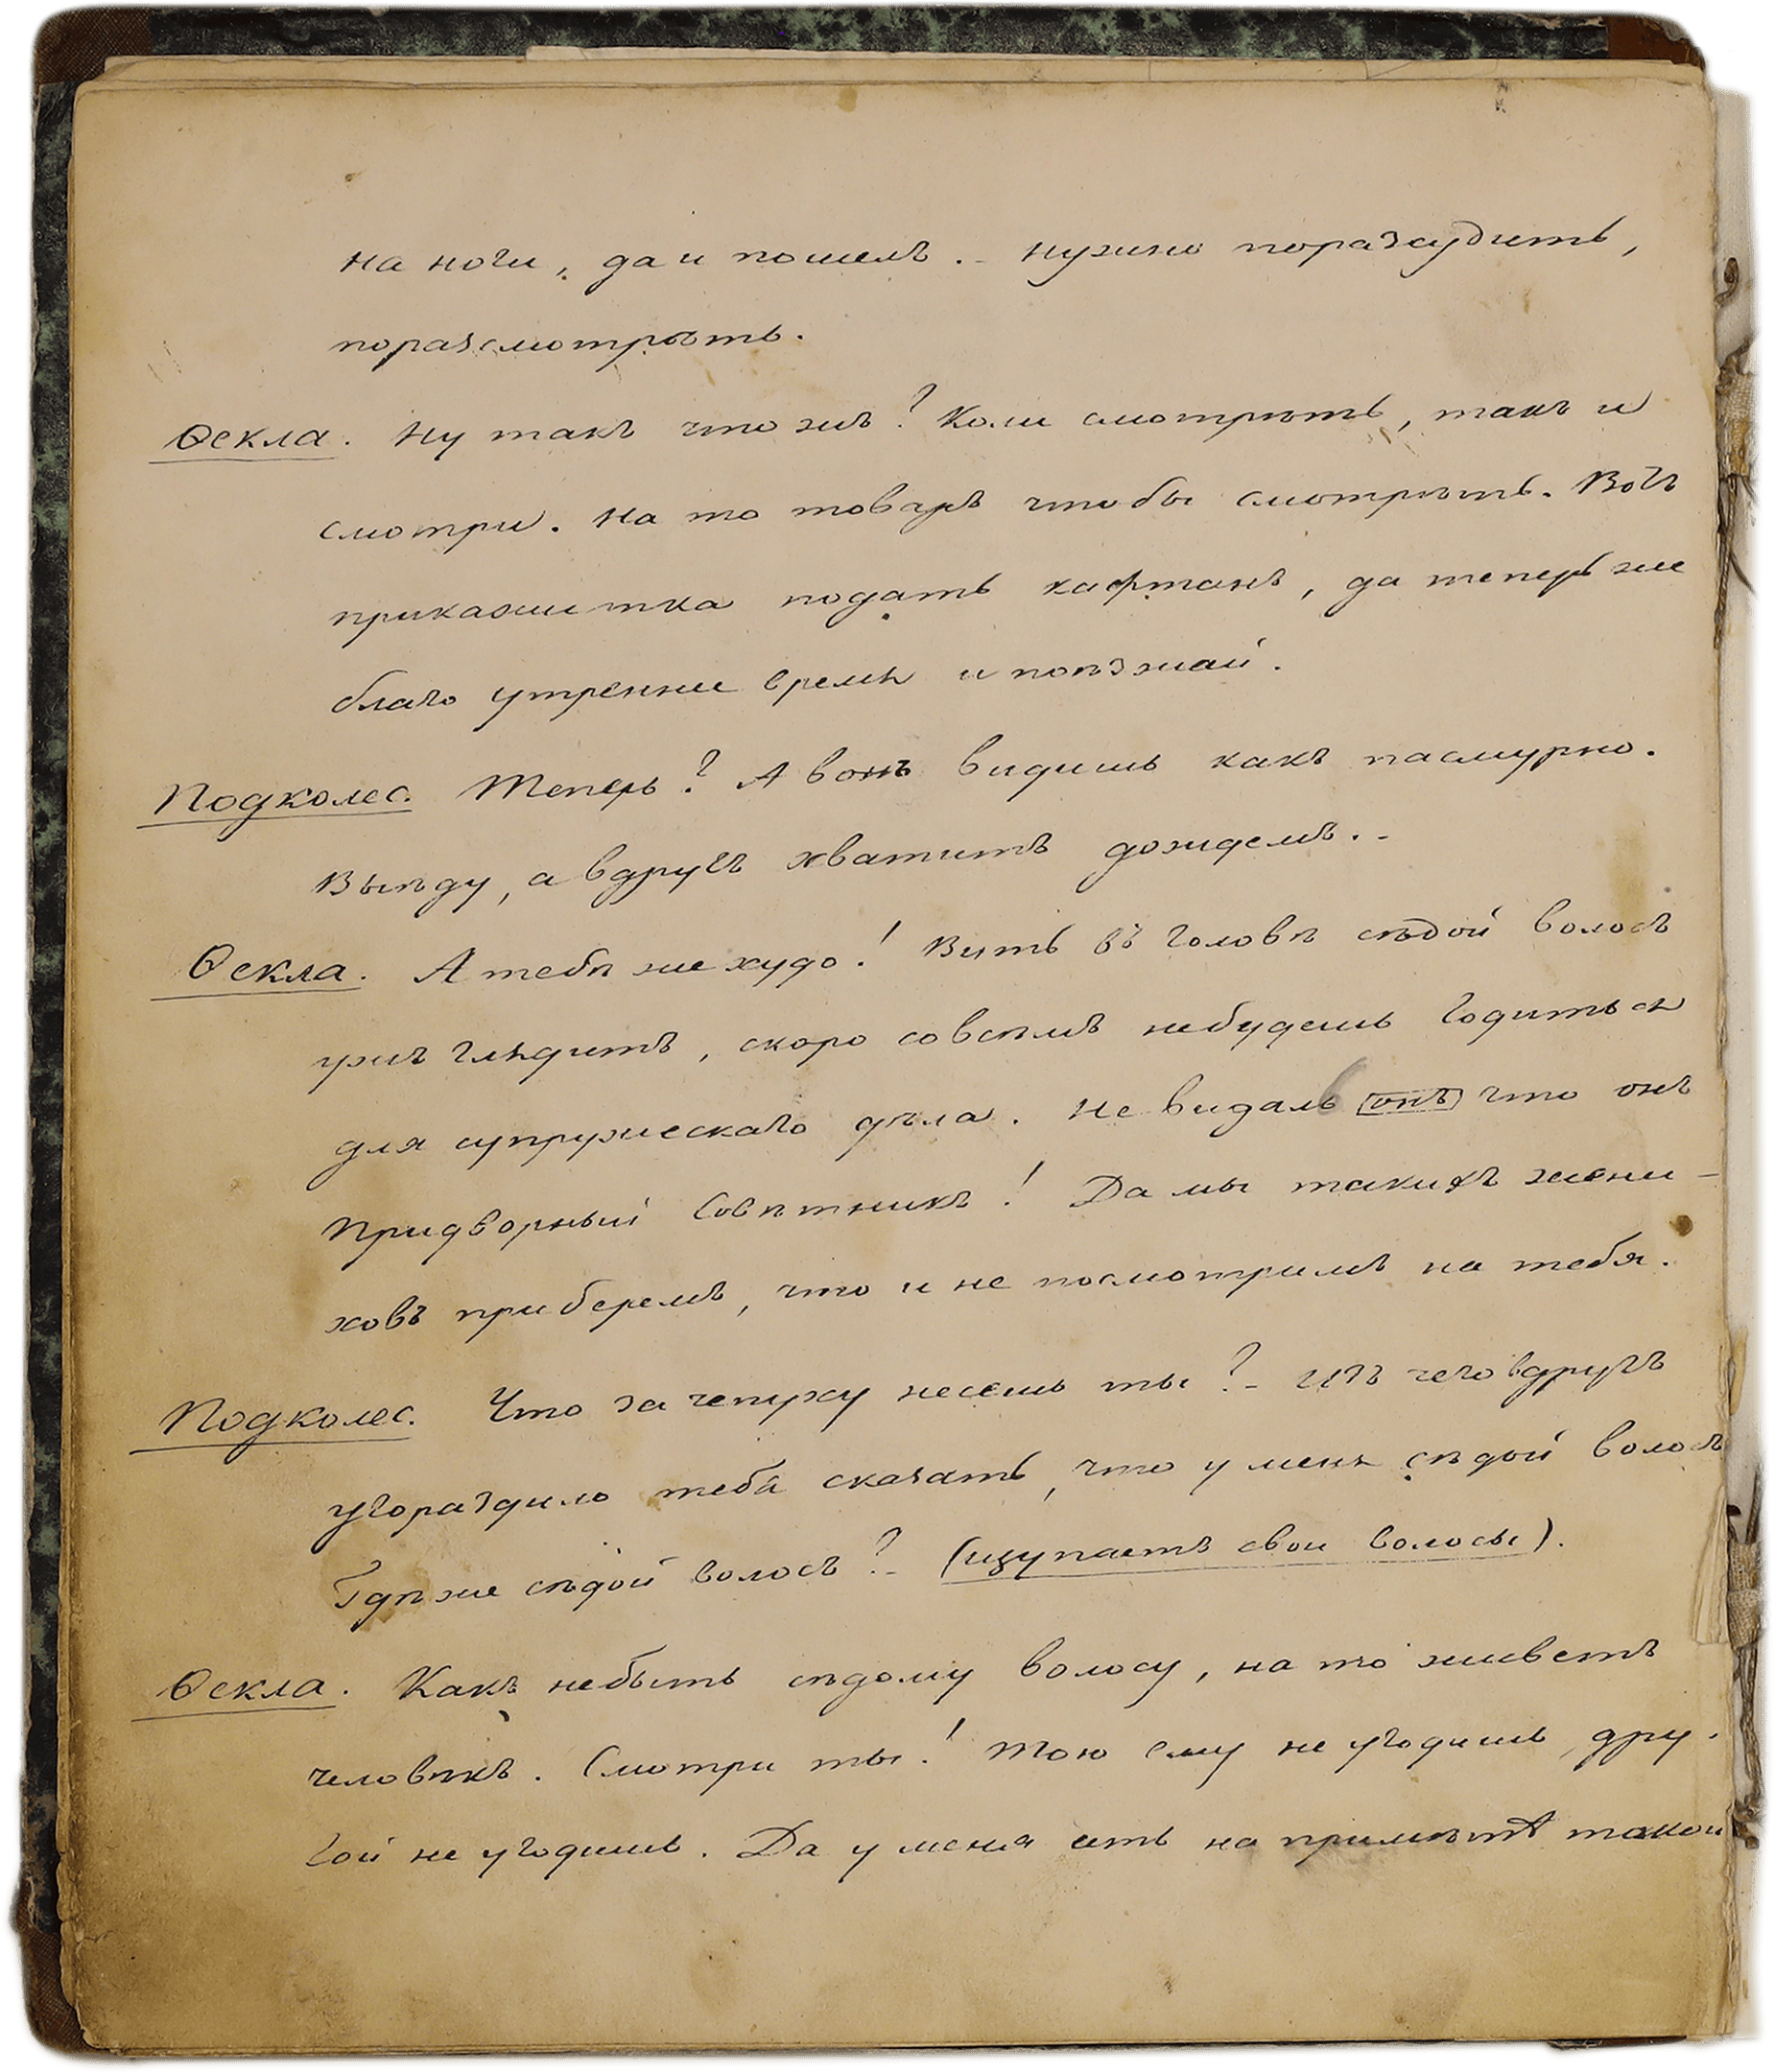 на ноги, да и пошелъ. - нужно поразсудить,
поразсмотрѣть.
Ѳекла. Ну такъ что жъ? Коли смотрѣть, такъ и
смотри. На то товаръ чтобы смотрѣть. Вотъ
прикажи тка подать кафтанъ, да теперь же
благо утренне время и поѣзжай.
Подколес. Теперь? А вонъ видишь какъ пасмурно.
Выѣду, а вдругъ хватитъ дождемъ. -
Ѳекла. А тебѣ же худо! Вить въ головѣ сѣдой волосъ
ужъ глядитъ, скоро совсѣмъ небудешь годиться
для супружескаго дѣла. Невидаль онъ что онъ
придворный Совѣтникъ! Да мы такихъ жени-
ховъ приберемъ, что и не посмотримъ на тебя.
Подколес. Что за чепуху несешь ты? - Изъ чего вдругъ
угораздило тебя сказать, что у меня сѣдой волосъ
Гдѣ же сѣдой волосъ? - (щупаетъ свои волосы).
Ѳекла. Какъ небыть сѣдому волосу, на то живетъ
человѣкъ. Смотри ты! Тою ему не угодишь, дру-
гой не угодишь. Да у меня есть на примѣтѣ такой